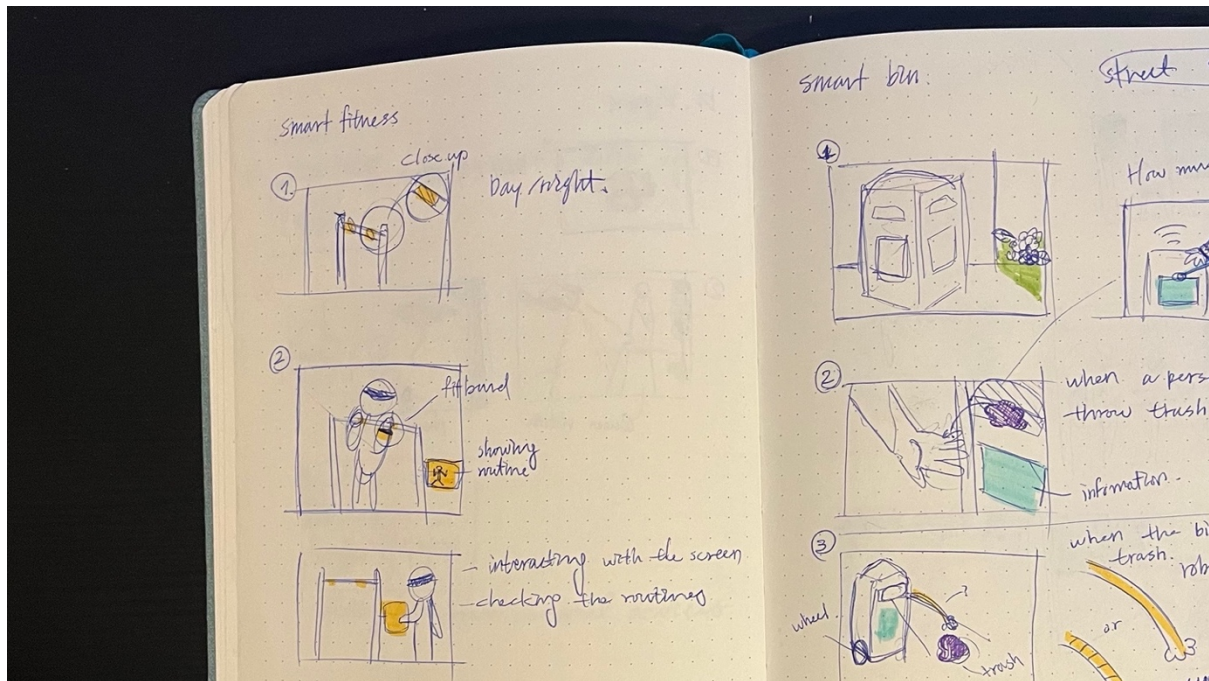 smart fitness
close up
1.
Day/night.
2
fitband
showing
routine
- interacting with the screen
- checking the routines
smart bin.
street
1
How
2
when a
throw trash
information.
3
when the
trash.
wheel
or
trash